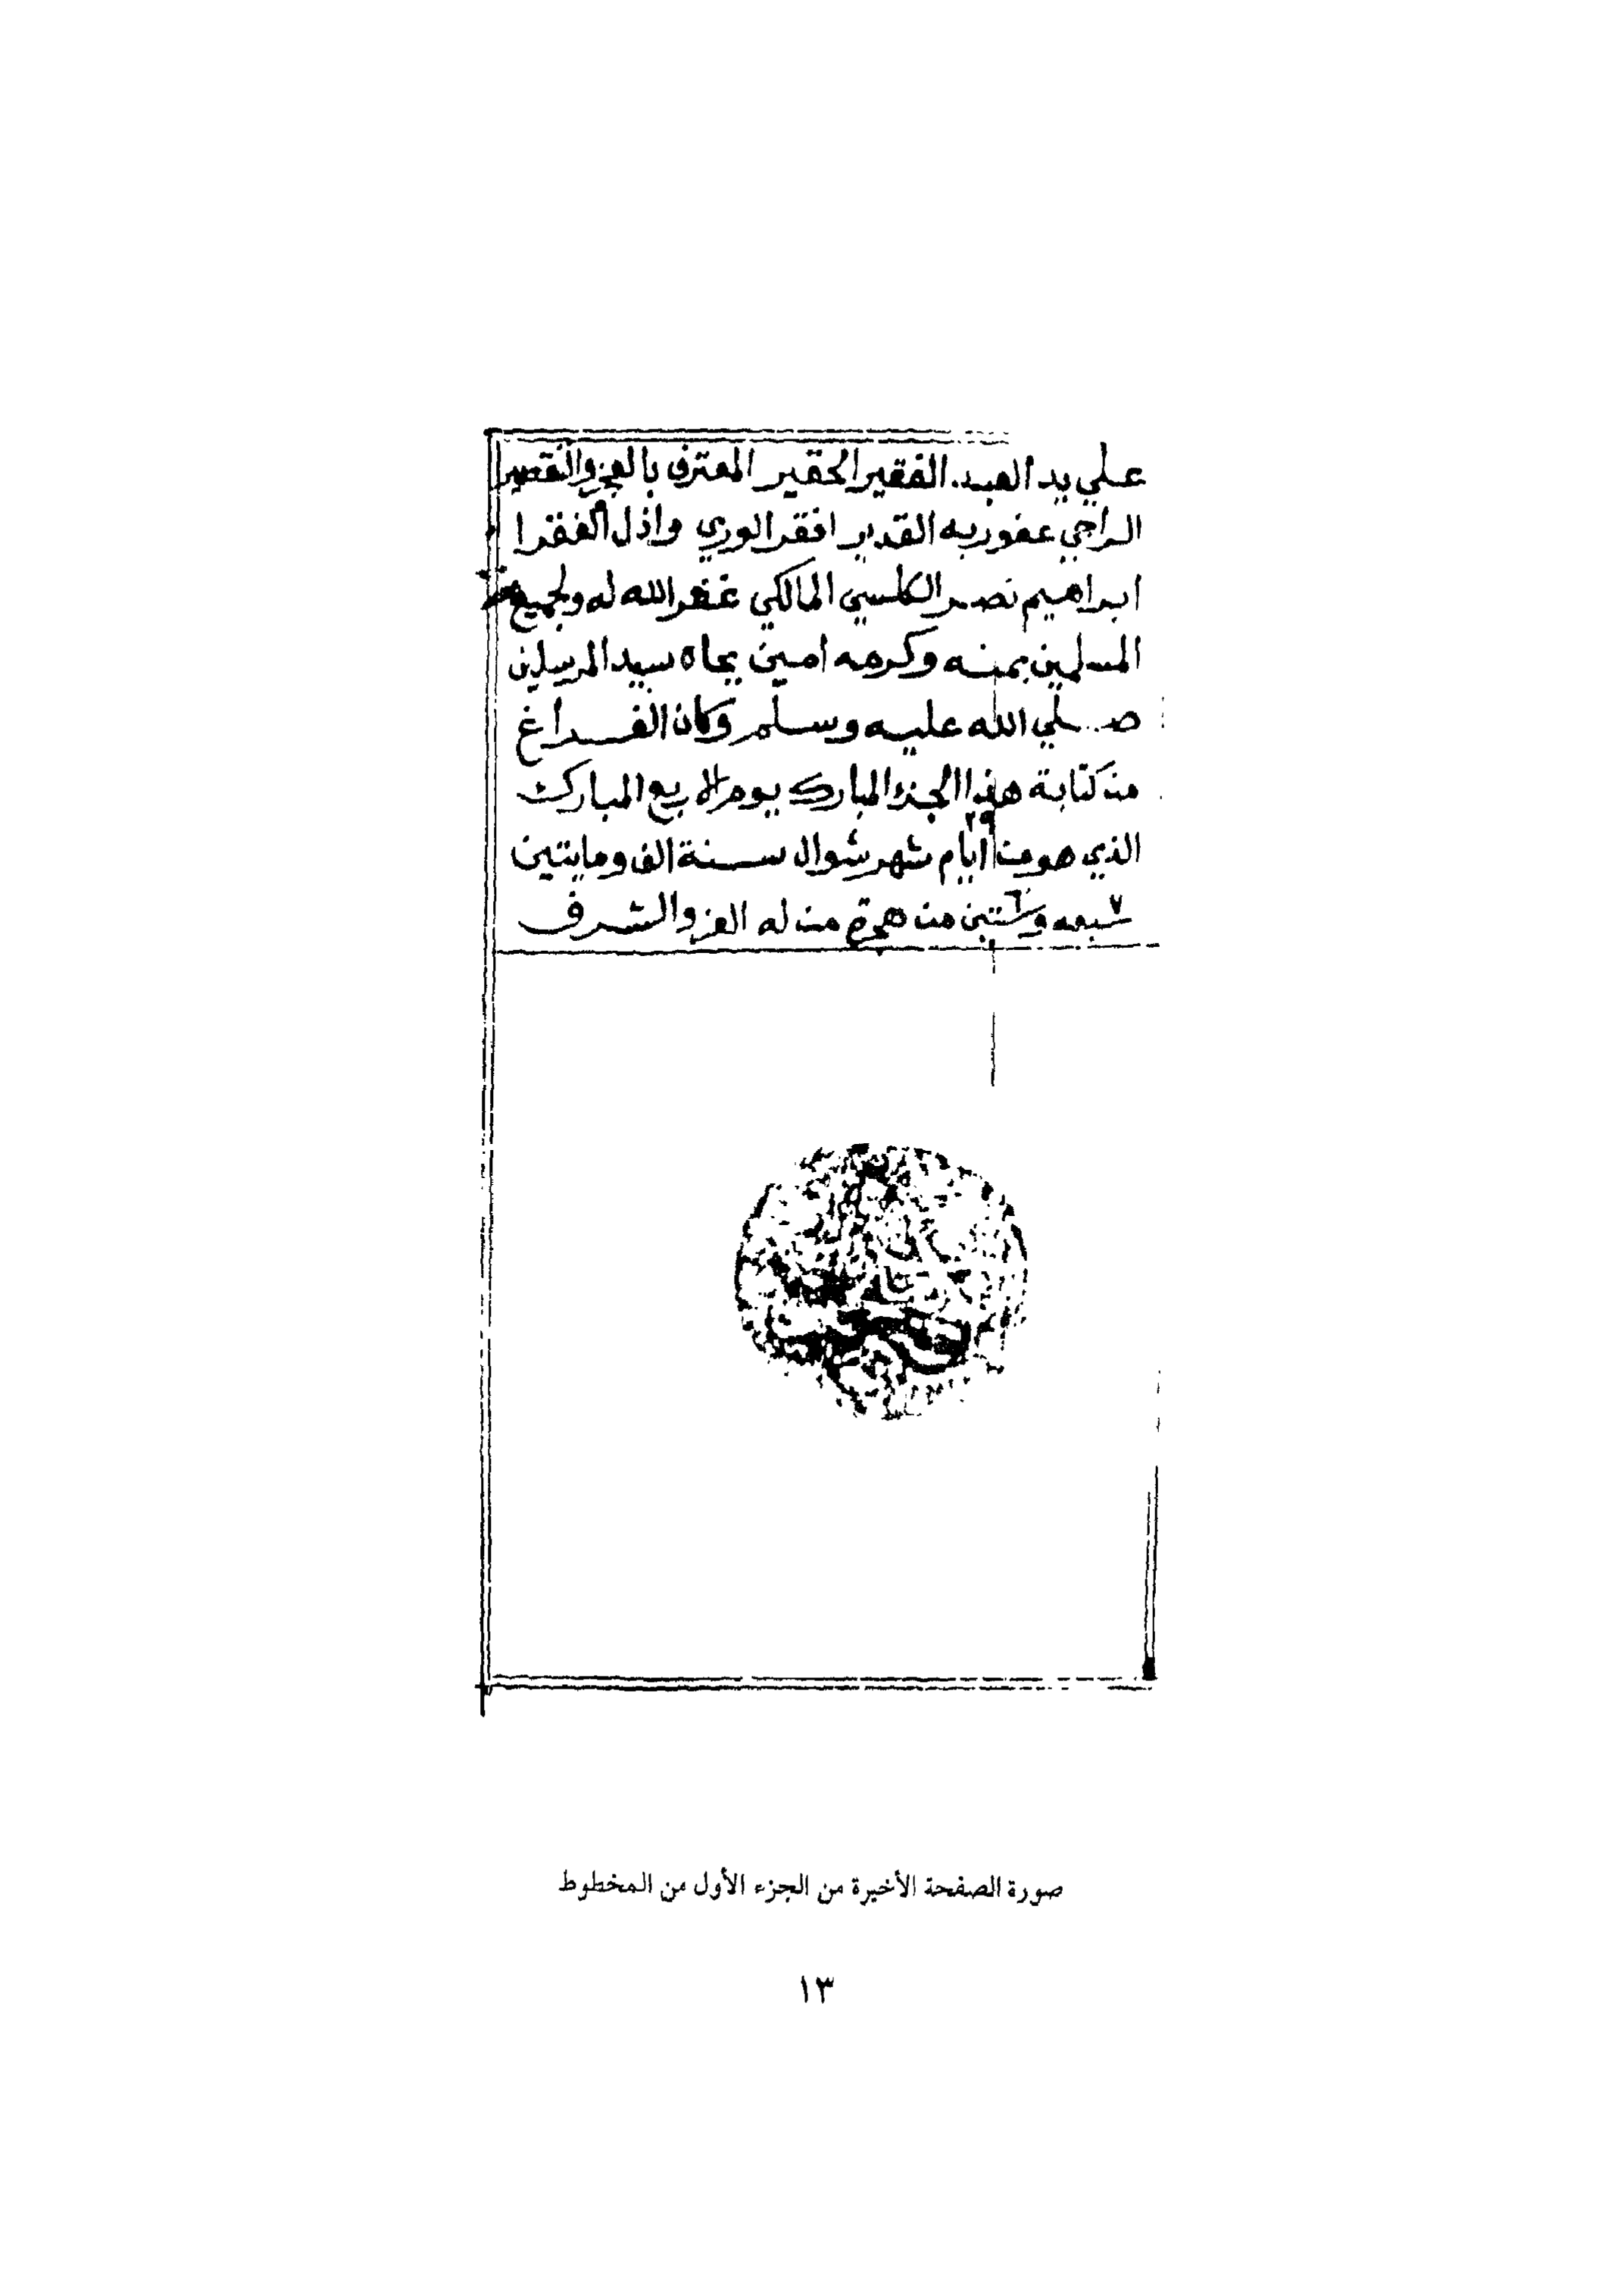 علي يد العبد الفقير الحقير المعترف بالعجز والتقصير
الراجي عفو ربه القدير افقر الوري واذل الفقرا
ابراهيم نصر المالكي غفر الله له ولجميع
المسلمين بمنه وكرمه امين بجاه سيد المرسلين
صلي الله عليه وسلم وكان الفراغ
من كتابة هذا الجزء المبارك يوم الاربع المبارك
الذي هو من ٢٩ ايام شهر شوال سنة الف ومايتين
سبعه وستين من هجرة من له العز والشرف
صورة الصفحة الأخيرة من الجزء الأول من المخطوط
١٣